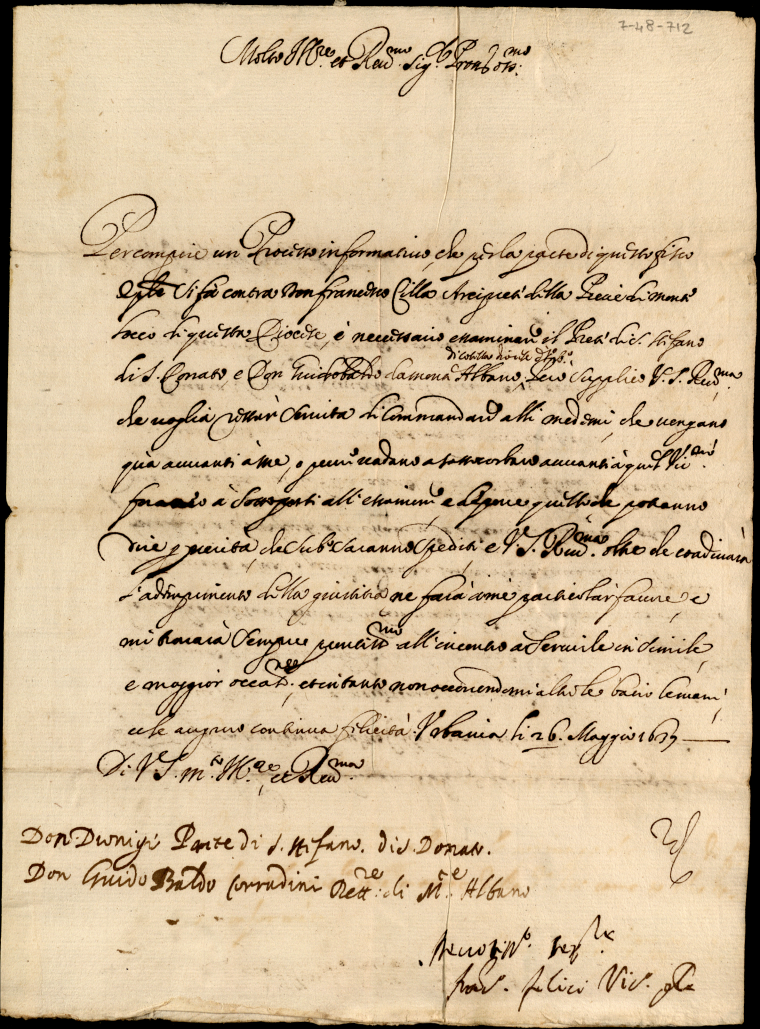 7-48-712
Molto Ill.re et Rev.mo Sig.
Per compire un Processo informativo, che per la parte di questo fisco
si fà contra Don Francesco Cilla Arciprete della Pieve di Monte
locco di questa Diocese, è necessario essaminare il Prete di S. Stefano
di S. Donato, e Don Guidobaldo da Monte Albano, Però supplico V. S. Rev.ma
che voglia restar servita di commandare alli medemi, che vengano
quà avvanti à me, o pure vadano avvanti à
à sottoporsi all'essamine, e deporre quello che potranno
dire per verità, che subito saranno spediti, e V. S. Rev.ma oltre che
l'adempimento della giustitia ne farà à me particolar favore, e
mi trovarà sempre all'incontro a servirle in simile,
e maggior occas.ne, et intanto non occorrendomi altro le bacio le mani,
et le auguro continua felicità. Urbania li 26. Maggio
Di V. S. m.to Ill.re et Rev.ma
Don Dionigi Prete di S. Stefano di S. Donato.
Don Guido Baldo Corradini Rett.re di M.e Albano
Felici Vic.